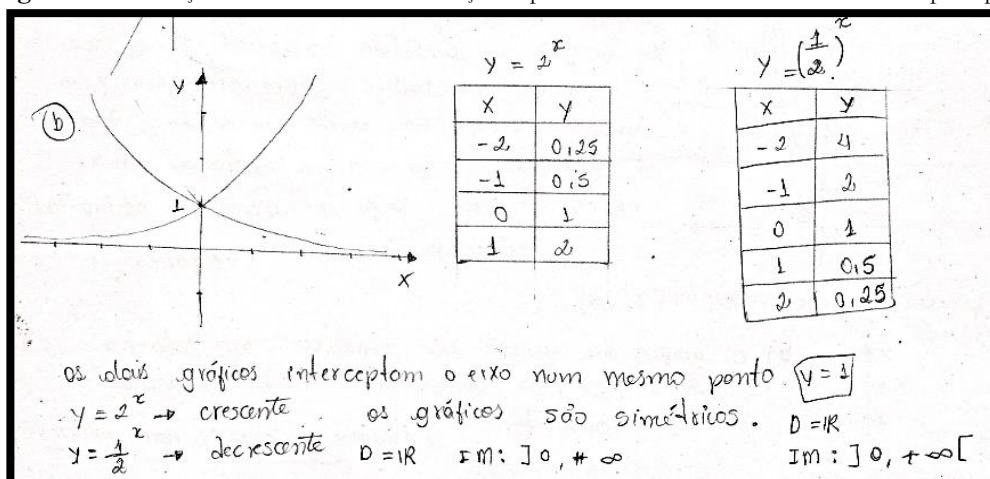 (b)
y
1
x
y = 2^x
x | y
-2 | 0,25
-1 | 0,5
0 | 1
1 | 2
y = (1/2)^x
x | y
-2 | 4
-1 | 2
0 | 1
1 | 0,5
2 | 0,25
os dois gráficos interceptam o eixo num mesmo ponto. y = 1
y = 2^x → crescente. os gráficos são simétricos. D = IR
y = 1/2^x → decrescente D = IR Im: ]0, +∞ Im: ]0, +∞[